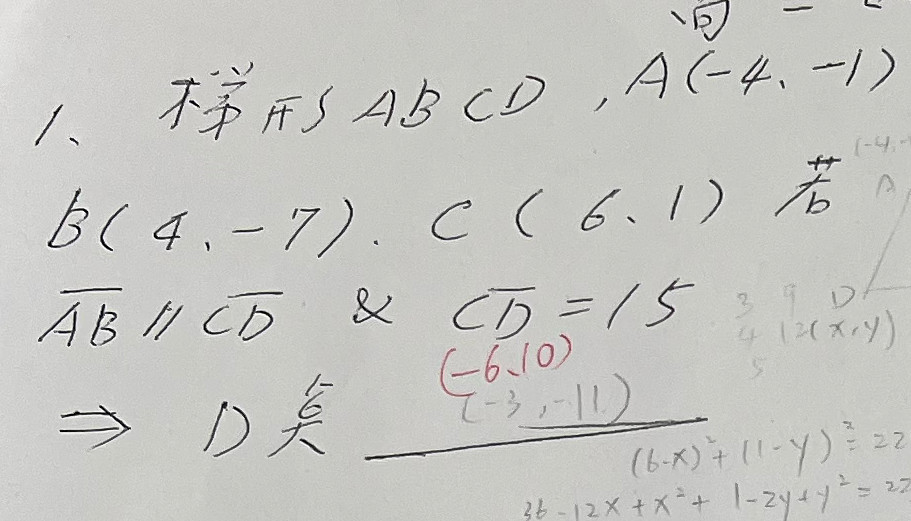 1、梯形ABCD，A(-4、-1)
B(4、-7)．C(6、1)若
AB // CD & CD = 15
(-6、10)
(-3,-11)
⇒ D点
3 9 D
4 12(x,y)
5
(6-x)²+(1-y)²=22
36-12x+x²+1-2y+y²=22